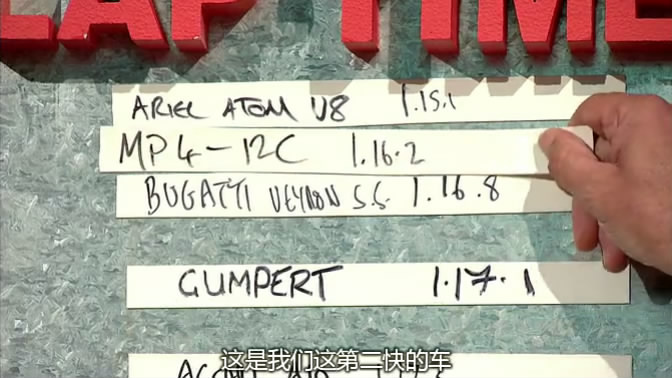 LAP TIME
ARIEL ATOM V8 1.15.1
MP4-12C 1.16.2
BUGATTI VEYRON S.S. 1.16.8
GUMPERT 1.17.1
这是我们这第二快的车